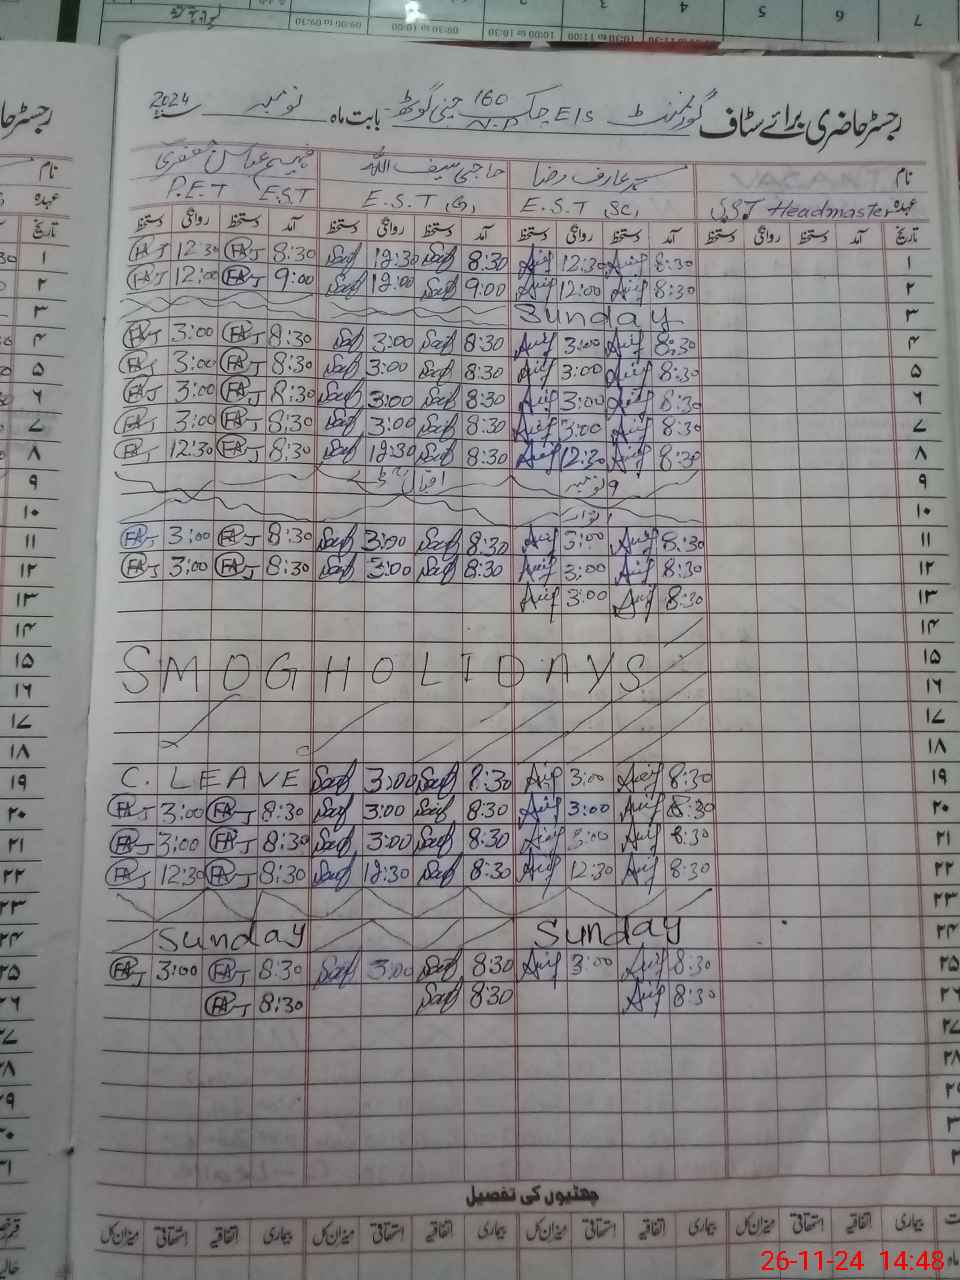 7 6 5 4 3 2
10:00 to 10:30 09:30 to 10:00 09:00 to 09:30
رجسٹر حاضری برائے سٹاف گورنمنٹ E/S چک 160 N.P جنی گوٹھ بابت ماہ نومبر سنہ 2024
نام VACANT محمد عارف رضا حاجی سیف اللہ عباس جعفری
عہدہ S.S.T Headmaster E.S.T (SC) E.S.T (G) P.E.T E.S.T
تاریخ آمد دستخط روانگی دستخط آمد دستخط روانگی دستخط آمد دستخط روانگی دستخط آمد دستخط روانگی دستخط
۱ 8:30 Arif 12:30 Arif 8:30 Saif 12:30 Saif 8:30 FAJ 12:30 FAJ
۲ 8:30 Arif 12:00 Arif 9:00 Saif 12:00 Saif 9:00 FAJ 12:00 FAJ
۳ Sunday
۴ 8:30 Arif 3:00 Arif 8:30 Saif 3:00 Saif 8:30 FAJ 3:00 FAJ
۵ 8:30 Arif 3:00 Arif 8:30 Saif 3:00 Saif 8:30 FAJ 3:00 FAJ
۶ 8:30 Arif 3:00 Arif 8:30 Saif 3:00 Saif 8:30 FAJ 3:00 FAJ
۷ 8:30 Arif 3:00 Arif 8:30 Saif 3:00 Saif 8:30 FAJ 3:00 FAJ
۸ 8:30 Arif 12:30 Arif 8:30 Saif 12:30 Saif 8:30 FAJ 12:30 FAJ
۹ 9 نومبر اقبال ڈے
۱۰ اتوار
۱۱ 8:30 Arif 3:00 Arif 8:30 Saif 3:00 Saif 8:30 FAJ 3:00 FAJ
۱۲ 8:30 Arif 3:00 Arif 8:30 Saif 3:00 Saif 8:30 FAJ 3:00 FAJ
۱۳ 8:30 Arif 3:00 Arif
۱۴
۱۵ SMOG HOLIDAYS
۱۶
۱۷
۱۸
۱۹ 8:30 Arif 3:00 Arif 8:30 Saif 3:00 Saif C. LEAVE
۲۰ 8:30 Arif 3:00 Arif 8:30 Saif 3:00 Saif 8:30 FAJ 3:00 FAJ
۲۱ 8:30 Arif 3:00 Arif 8:30 Saif 3:00 Saif 8:30 FAJ 3:00 FAJ
۲۲ 8:30 Arif 12:30 Arif 8:30 Saif 12:30 Saif 8:30 FAJ 12:30 FAJ
۲۳
۲۴ Sunday Sunday
۲۵ 8:30 Arif 3:00 Arif 8:30 Saif 3:00 Saif 8:30 FAJ 3:00 FAJ
۲۶ 8:30 Arif 8:30 Saif 8:30 FAJ
۲۷
۲۸
چھٹیوں کی تفصیل
بیماری اتفاقیہ استحقاقی میزان کل بیماری اتفاقیہ استحقاقی میزان کل بیماری اتفاقیہ استحقاقی میزان کل بیماری اتفاقیہ استحقاقی میزان کل
26-11-24 14:48